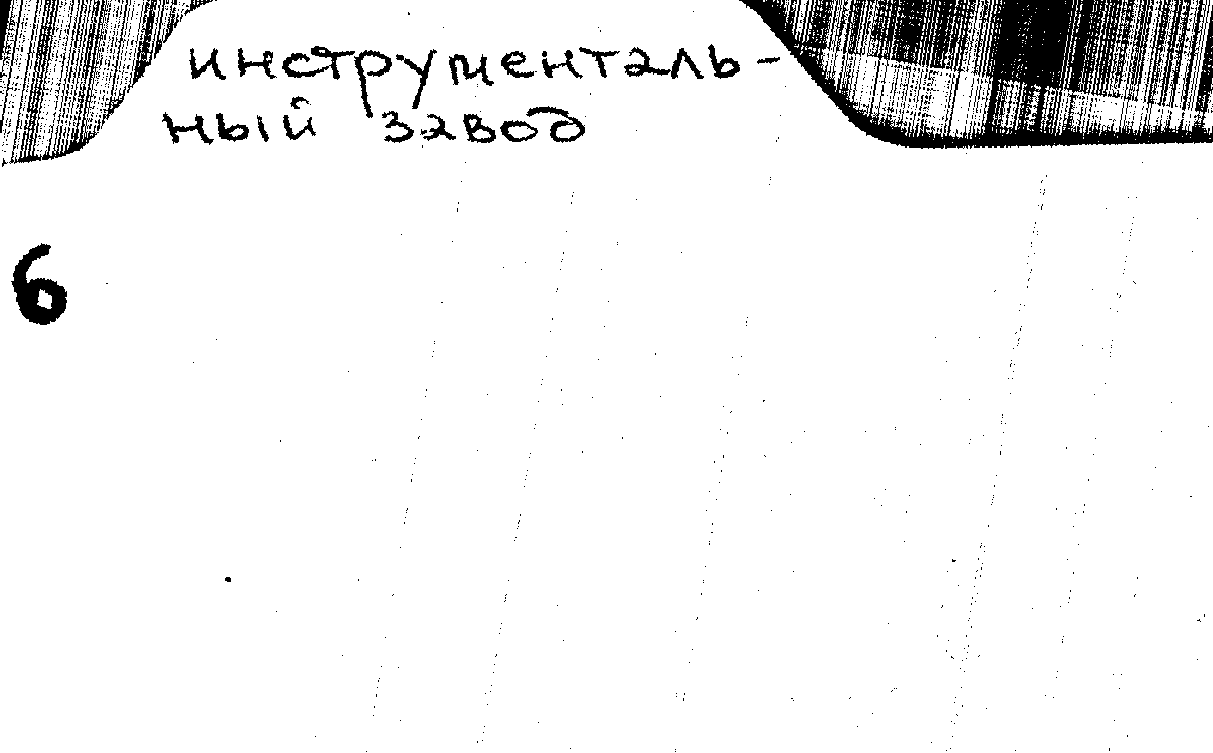 инструменталь-
ный завод
6